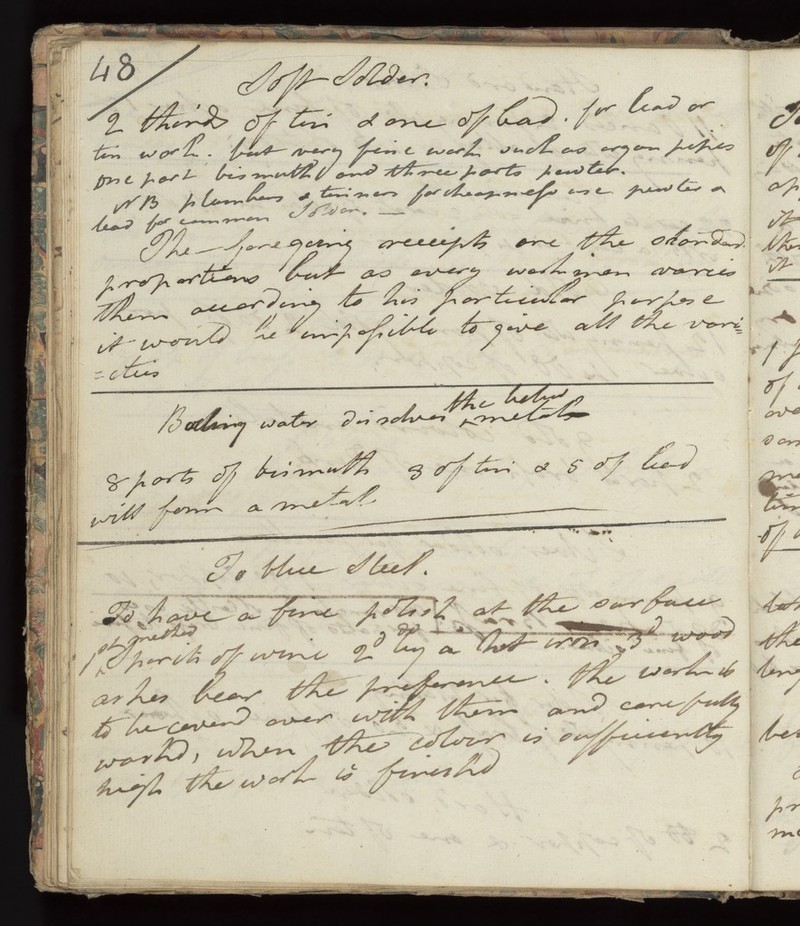 48
Soft Solder.
2 thirds of tin & one of lead. for lead or
tin work. but very fine work such as organ pipes
one part bismuth and three parts pewter.
NB plumbers & tinners for cheapness use pewter &
lead for common Solder. —
The foregoing receipts are the standard
proportions but as every workman varies
them according to his particular purpose
it would be impossible to give all the vari=
=eties
Boiling water dissolves the below metal
8 parts of bismuth 3 of tin & 5 of lead
will form a metal
To blue Steel.
To have a fine polish at the surface
1st method
spirits of wine 2d by a hot iron 3d wood
ashes bear the preference. the work is
to be coverd over with them and carefully
workd, when the colour is sufficiently
high the work is finishd
of
it
it
1
of
of
the
pr